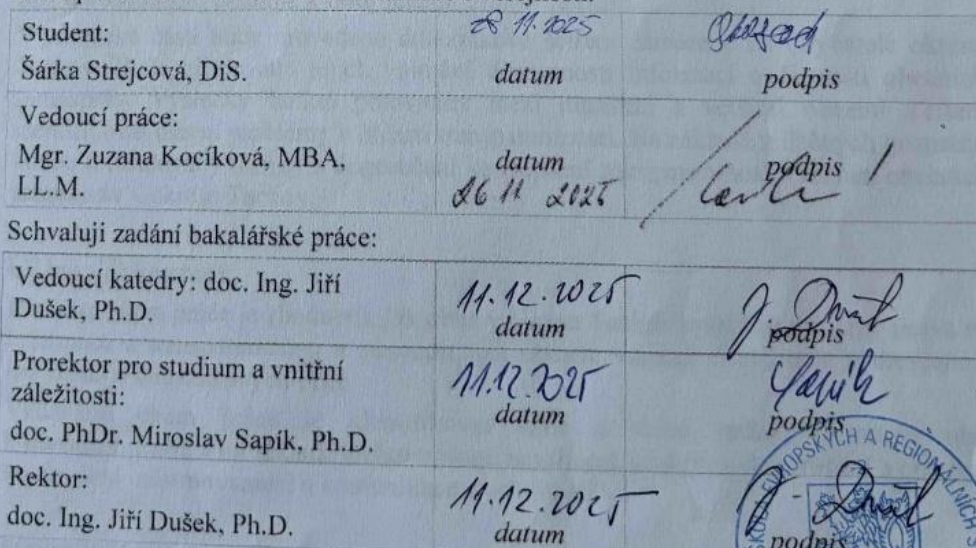 Student:
28.11.2025
Šárka Strejcová, DiS.
datum
podpis
Vedoucí práce:
Mgr. Zuzana Kocíková, MBA,
LL.M.
datum
podpis
26 11 2025
Schvaluji zadání bakalářské práce:
Vedoucí katedry: doc. Ing. Jiří
Dušek, Ph.D.
11.12.2025
datum
podpis
Prorektor pro studium a vnitřní
záležitosti:
doc. PhDr. Miroslav Sapík, Ph.D.
11.12.2025
datum
Sapík
podpis
Rektor:
doc. Ing. Jiří Dušek, Ph.D.
11.12.2025
datum
podpis
EVROPSKÝCH A REGIONÁLNÍCH